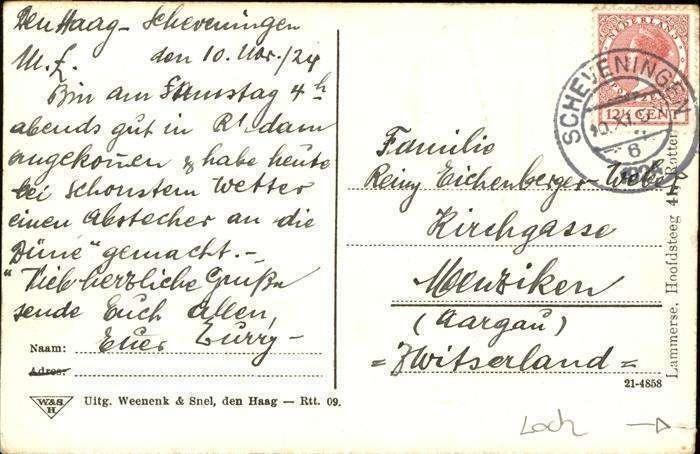 Den Haag - Scheveningen
M. L. den 10. Nov. /24
Bin am Samstag 4 h
abends gut in R'dam
angekommen & habe heute
bei schönstem Wetter
einen Abstecher an die
"Düne" gemacht. -
Viel herzliche Grüße
sende Euch allen,
Euer
Naam:
Adres:
W&S
H
Uitg. Weenenk & Snel, den Haag — Rtt. 09.
NEDERLAND
12½ CENT
SCHEVENINGEN
10.XI.
6
Familie
Reiny Eichenberger-Weber
Kirchgasse
Menziken
(Aargau)
= Zwitserland =
21-4858
Lammerse, Hooldsteeg Rotter
Loch